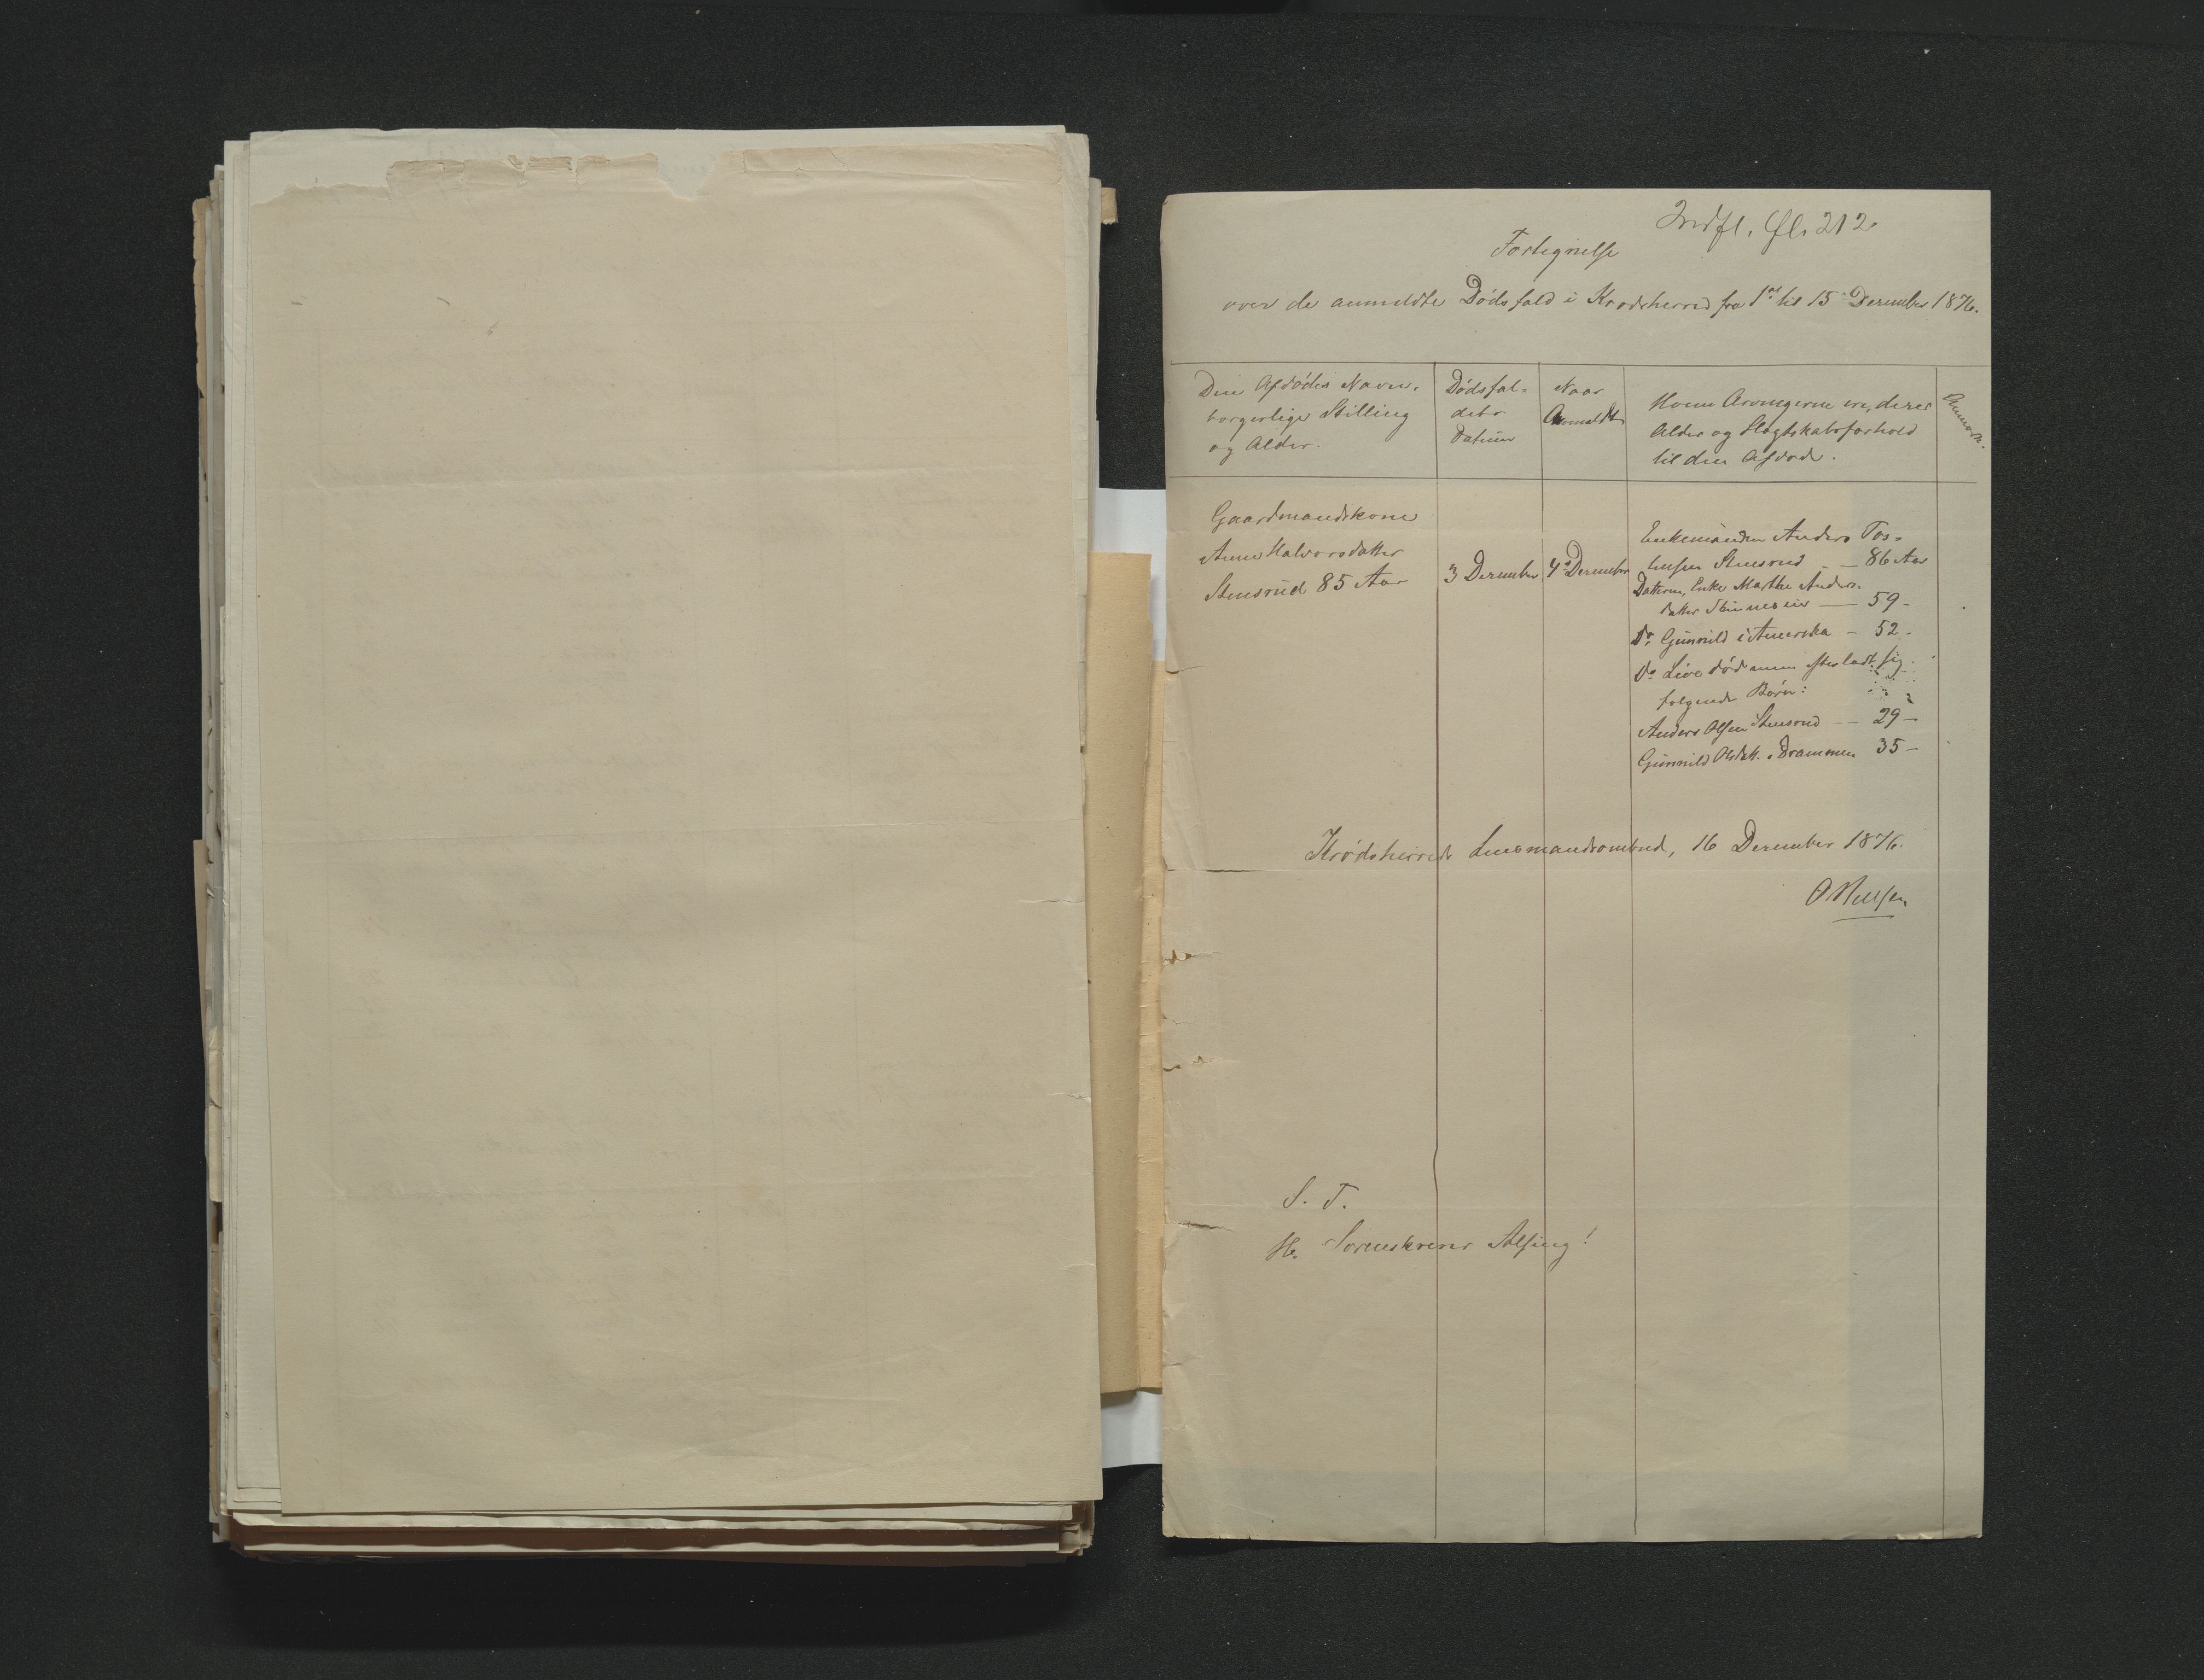 Indfl. Øl. 212
Fortegnelse
over de anmeldte Dødsfald i Krødsherred fra 1ste til 15 December 1876.
Den Afdødes Navn,
borgerlige Stilling
og Alder.
Dødsfal-
dets
Datum
Naar
Anmeldt
Hvem Arvingerne ere, deres
Alder og Slægtskabsforhold
til den Afdøde.
Anmærk.
Gaardmandskone
Anne Halvorsdatter
Stensrud 85 Aar
3 December
4de December
Enkemanden Anders Tos-
tensen Stensrud — 86 Aar
Datteren, Enke Marthe Anders-
datter — 59 –
Do Gunnild i Amerika – 52 –
Do Live død men efterladt sig
følgende Børn:
Anders Olsen Stensrud — 29 –
Gunnild Olsdatt. i Drammen 35 –
Krødsherreds Lensmandsombud, 16 December 1876.
O Nielsen
S. T.
Hr. Sorenskriver Alsing!